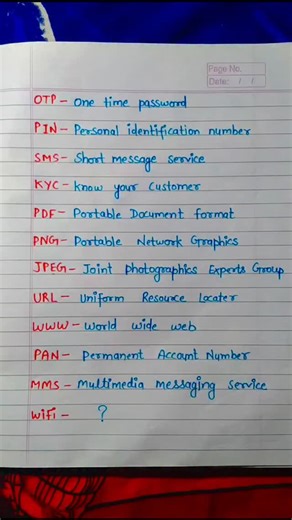 Page No.
Date: / /
OTP - One time password
PIN - Personal identification number
SMS - Short message service
KYC - Know your Customer
PDF - Portable Document format
PNG - Portable Network Graphics
JPEG - Joint photographics Experts Group
URL - Uniform Resource Locater
WWW - World wide web
PAN - Permanent Account Number
MMS - Multimedia messaging service
WiFi - ?